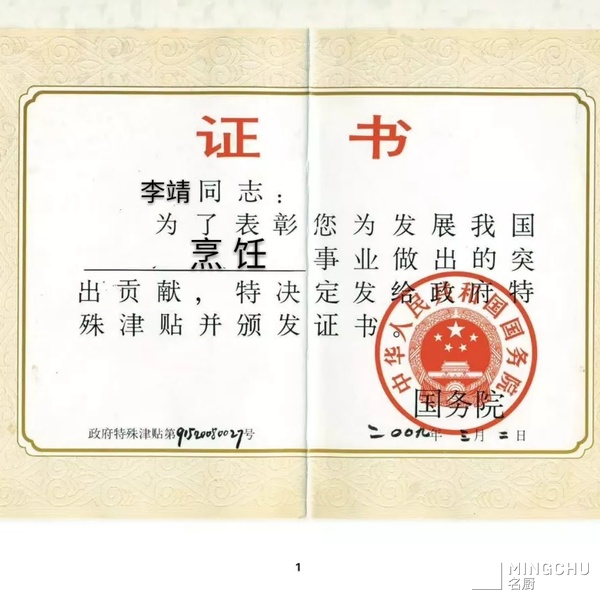 证书
李靖同志：
为了表彰您为发展我国
烹饪事业做出的突
出贡献，特决定发给政府特
殊津贴并颁发证书。
中华人民共和国国务院
国务院
政府特殊津贴第91520080027号
二〇〇九年三月二日
1
MINGCHU
名厨